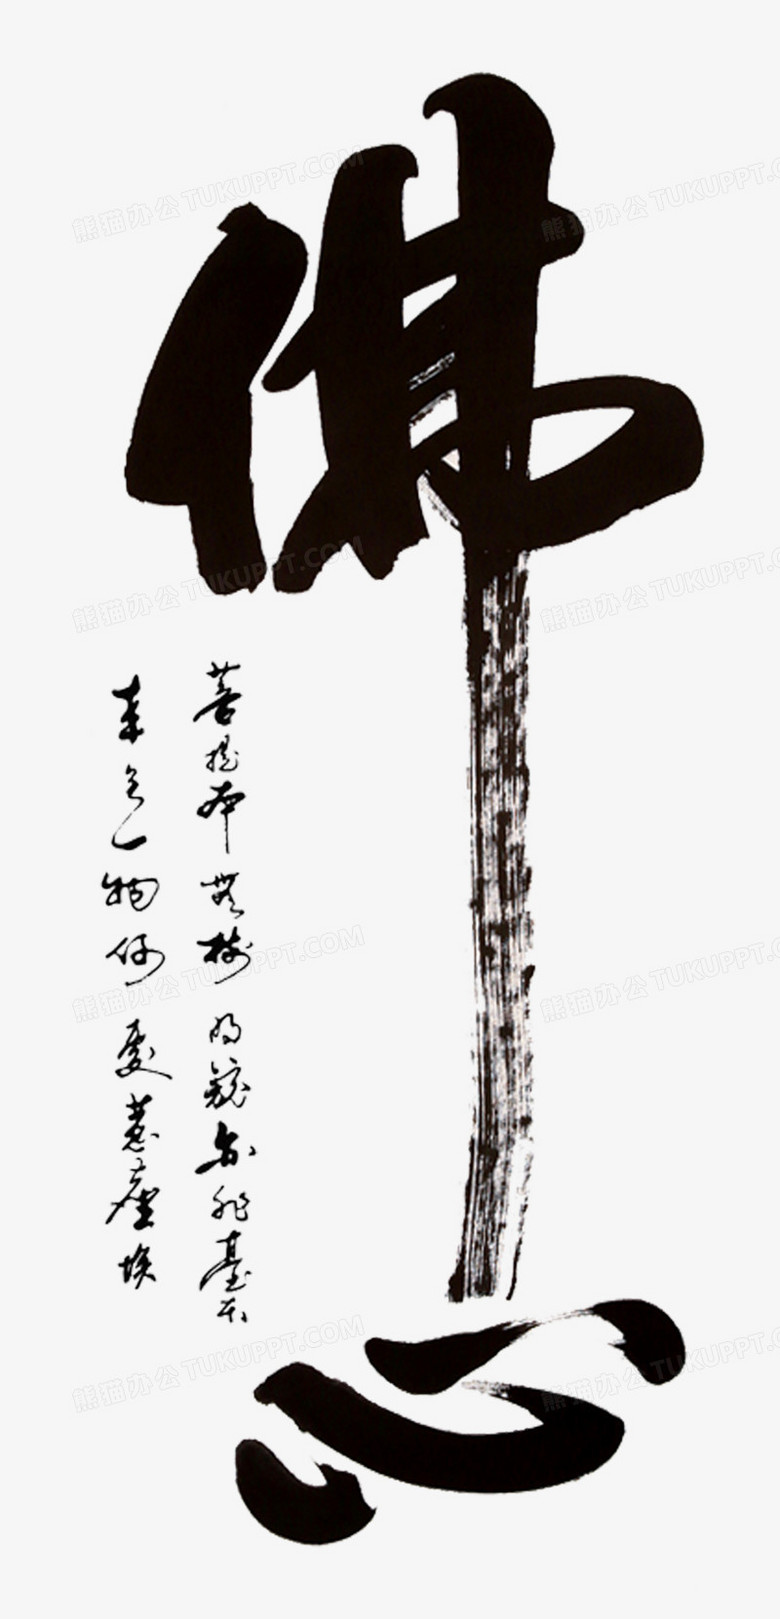 佛心
菩提本無樹明鏡亦非臺本
來無一物何處惹塵埃
熊猫办公 TUKUPPT.COM
熊猫办公 TUKUPPT
熊猫办公 TUKUPPT.COM
熊猫办公 TUKUPPT
熊猫办公 TUKUPPT.COM
熊猫办公 TUKUPPT
熊猫办公 TUKUPPT.COM
熊猫办公 TUKUPPT